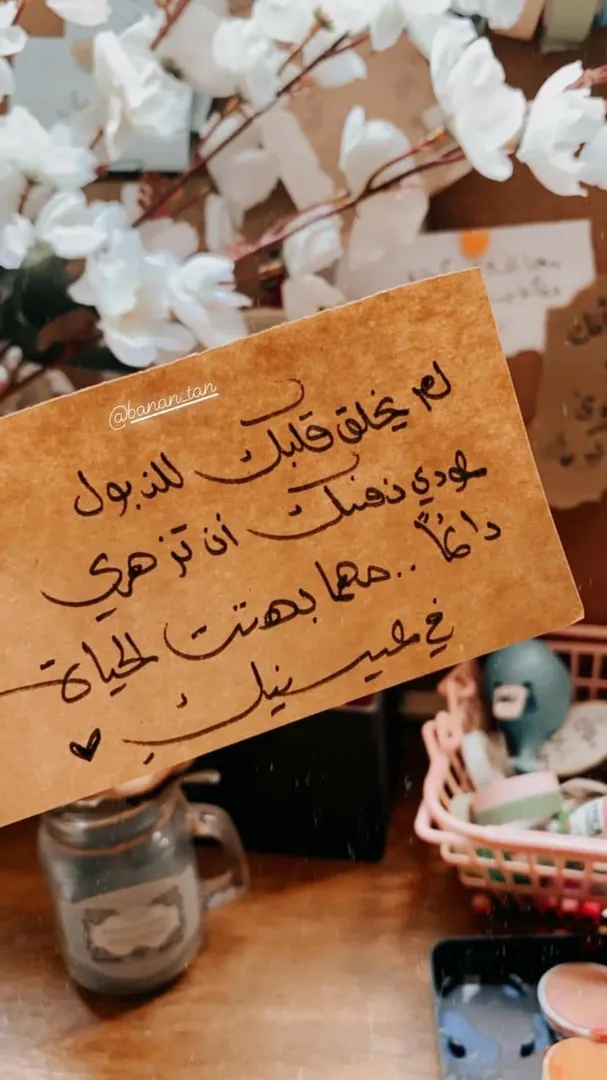 @banan_tan
لم يخلق قلبك للذبول
عودي نفسك أن تزهري
دائماً .. مهما بهتت الحياة
في عينيك